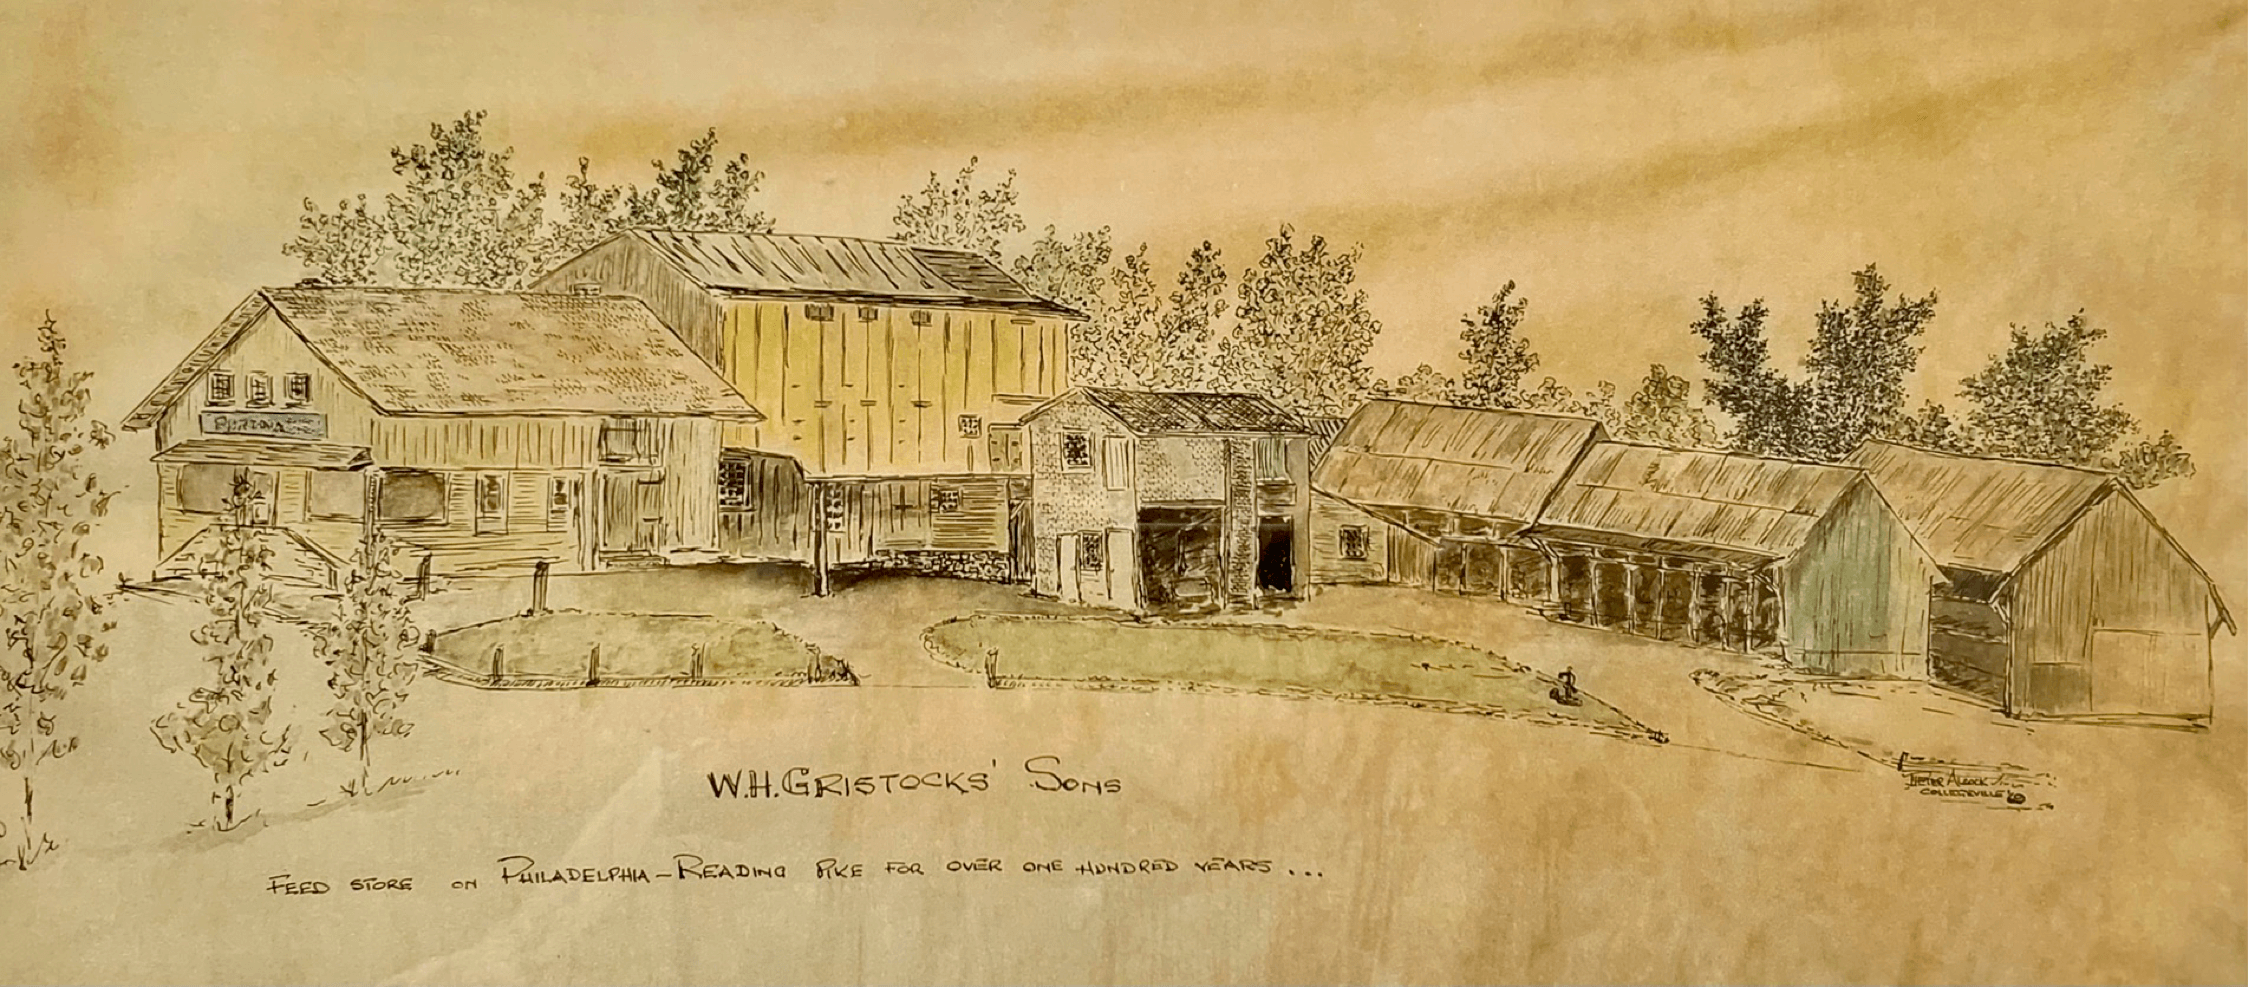 PURINA
W.H. GRISTOCKS' SONS
FEED STORE ON PHILADELPHIA-READING PIKE FOR OVER ONE HUNDRED YEARS...
PIETER ALCOCK
COLLEGEVILLE